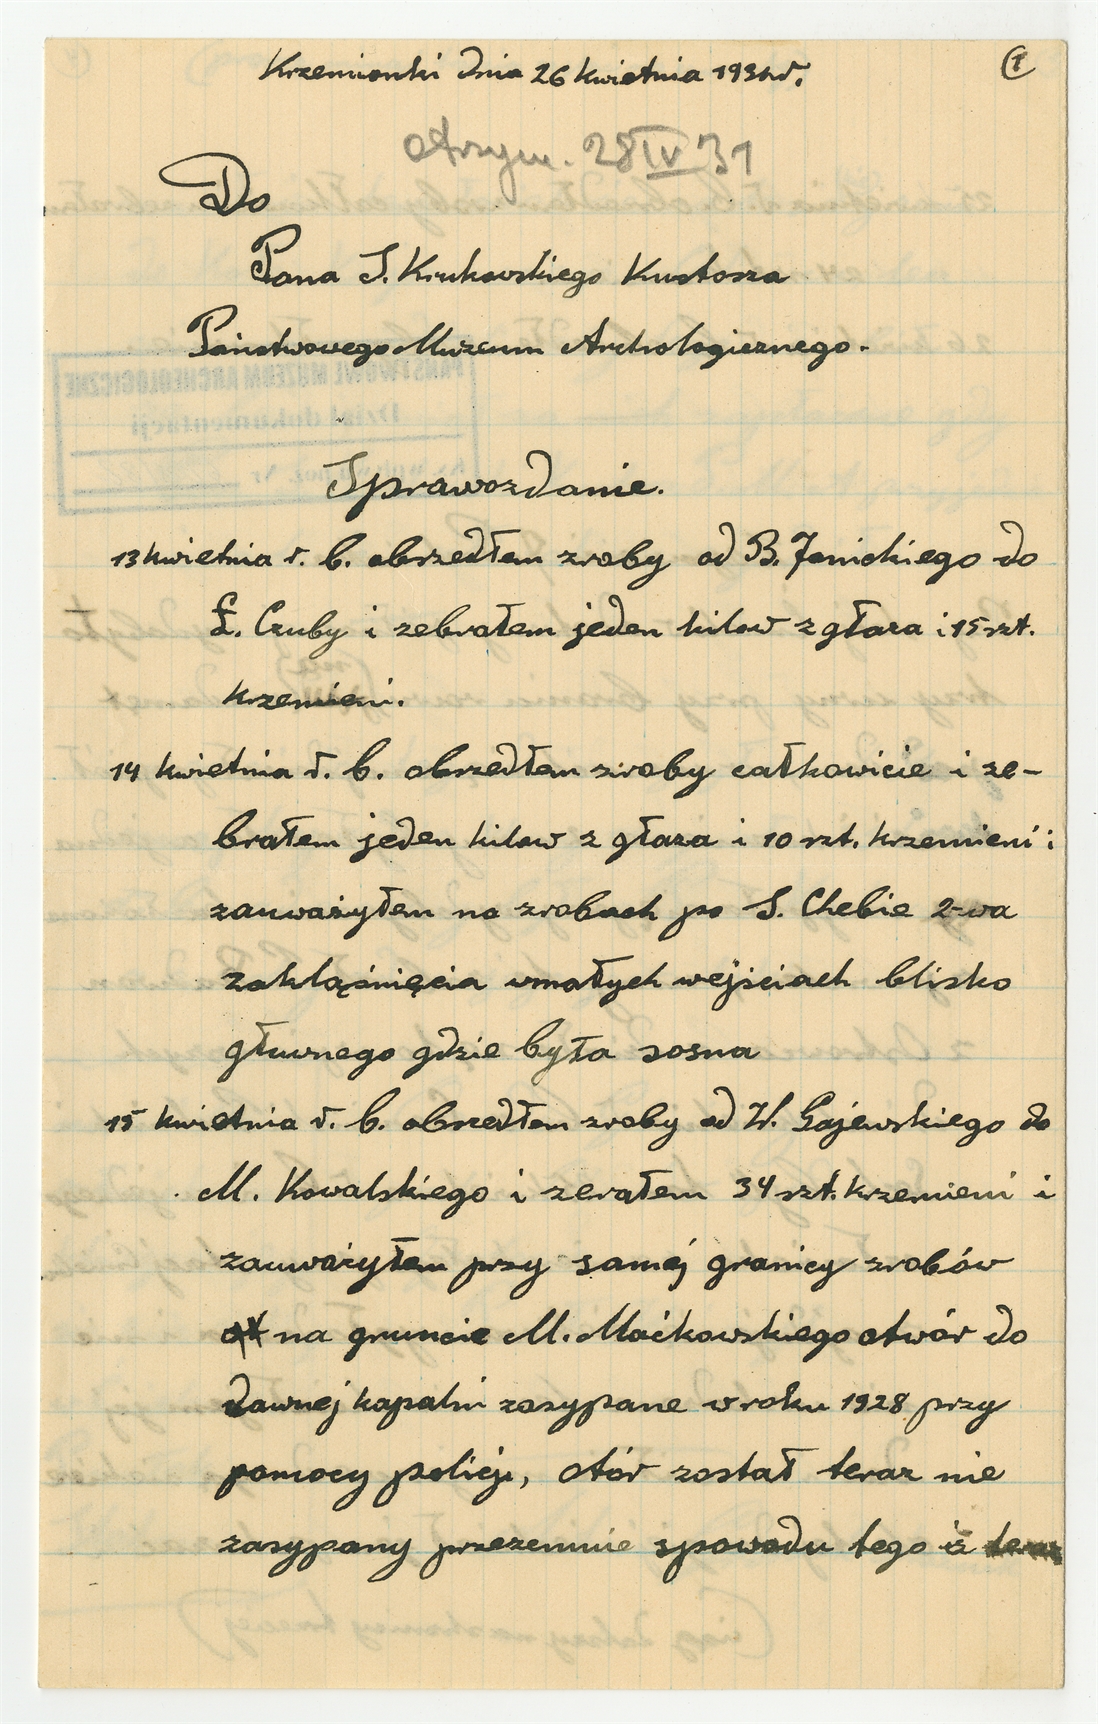 Krzemionki dnia 26 kwietnia 1931 r.
①
Otrzym. 28 IV 31
Do
Pana S. Krukowskiego Kustosza
Państwowego Muzeum Archologicznego.
PAŃSTWOWE MUZEUM ARCHEOLOGICZNE
Dział dokumentacji
Sprawozdanie.
13 kwietnia r. b. obszedłem zroby od B. Janickiego do
Ł. Czuby i zebrałem jeden kilow z głaza i 15 szt.
krzemieni.
14 kwietnia r. b. obszedłem zroby całkowicie i ze-
brałem jeden kilow z głaza i 10 szt. krzemieni i
zauważyłem na zrobach po S. Chebie 2-wa
zakląśnięcia wmałych wejściach blisko
głuwnego gdzie była sosna
15 kwietnia r. b. obszedłem zroby od W. Gajewskiego do
M. Kowalskiego i zerałem 34 szt. krzemieni i
zauważyłem przy samej granicy zrobów
na gruncie M. Maćkowskiego otwór do
dawnej kopalni zasypane w roku 1928 przy
pomocy policji, otór został teraz nie
zasypany przezemnie spowodu tego iż